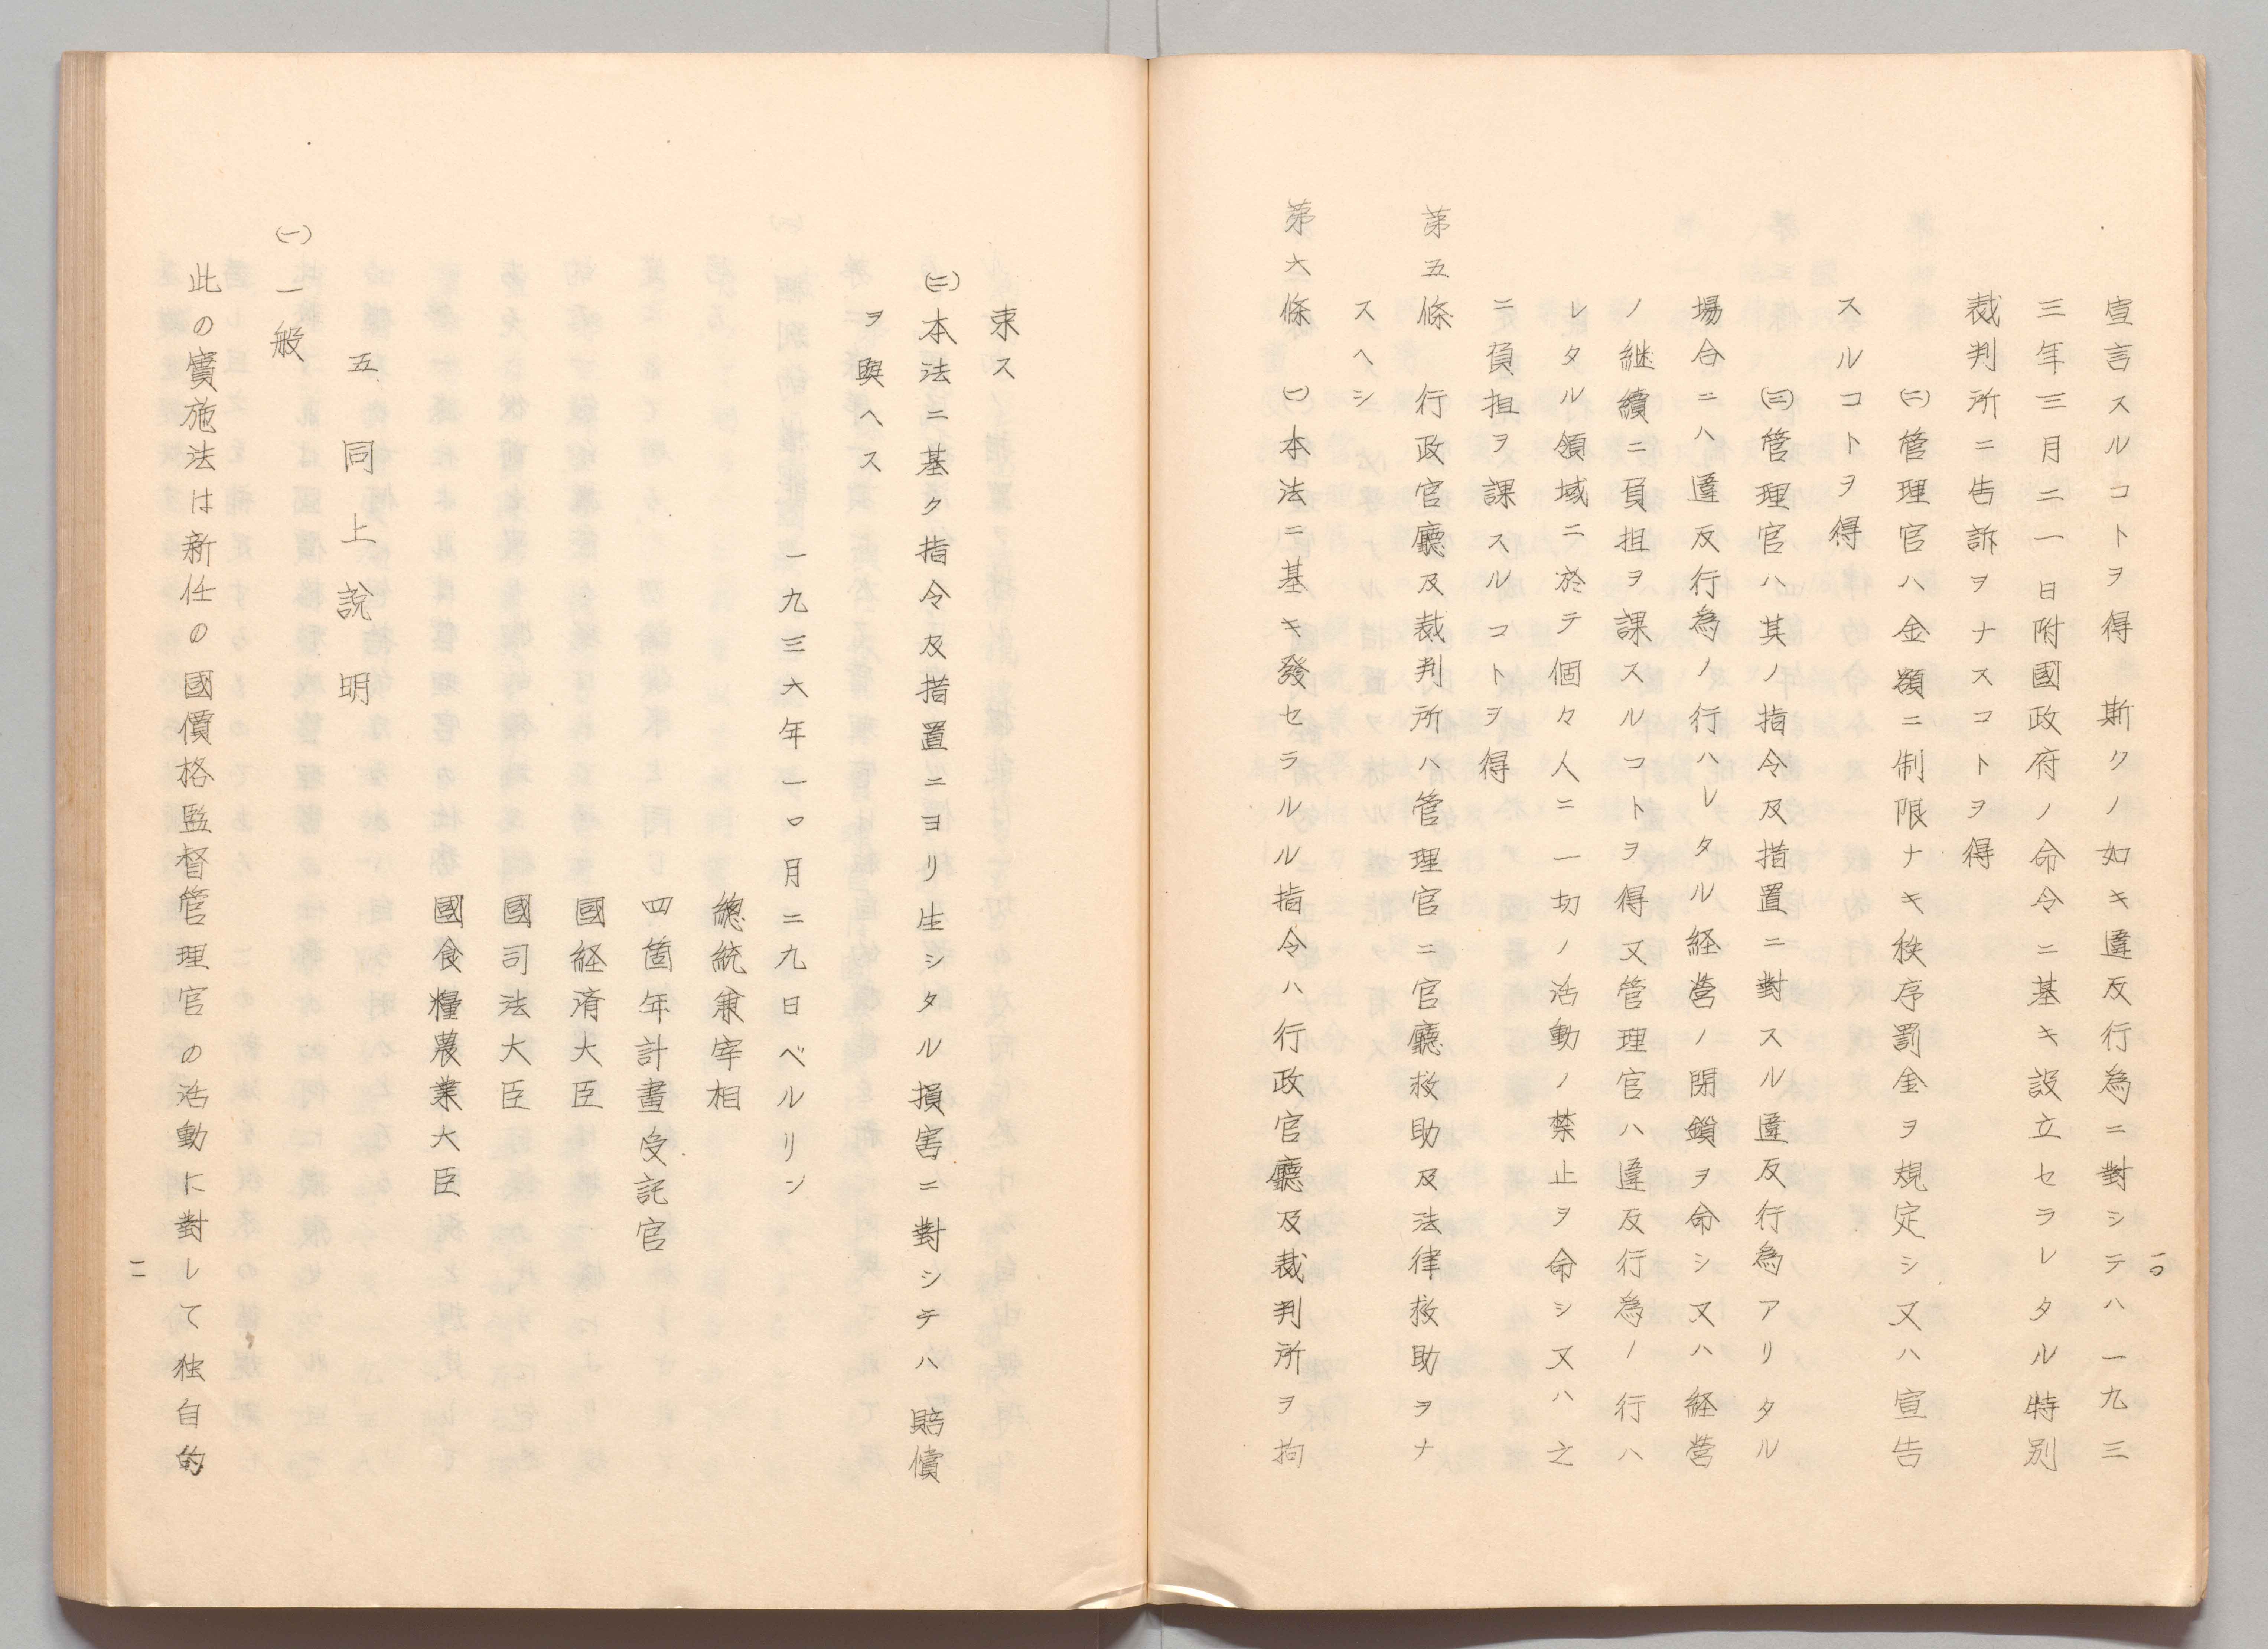 一〇
宣言スルコトヲ得　斯クノ如キ違反行為ニ對シテハ一九三
三年三月二一日附國政府ノ命令ニ基キ設立セラレタル特別
裁判所ニ告訴ヲナスコトヲ得
㈡管理官ハ金額ニ制限ナキ秩序罰金ヲ規定シ又ハ宣告
スルコトヲ得
㈢管理官ハ其ノ指令及措置ニ對スル違反行為アリタル
場合ニハ違反行為ノ行ハレタル経営ノ閉鎖ヲ命シ又ハ経営
ノ継續ニ負担ヲ課スルコトヲ得又管理官ハ違反行為ノ行ハ
レタル領域ニ於テ個々人ニ一切ノ活動ノ禁止ヲ命シ又ハ之
ニ負担ヲ課スルコトヲ得
第五條　行政官廳及裁判所ハ管理官ニ官廳救助及法律救助ヲナ
スヘシ
第六條　㈠本法ニ基キ發セラルル指令ハ行政官廳及裁判所ヲ拘
束ス
㈡本法ニ基ク指令及措置ニヨリ生シタル損害ニ對シテハ賠償
ヲ與ヘス
一九三六年一〇月二九日ベルリン
總統兼宰相
四箇年計畫受託官
國経済大臣
國司法大臣
國食糧農業大臣
五　同上說明
㈠一般
此の實施法は新任の國價格監督管理官の活動に對して独自的
一一